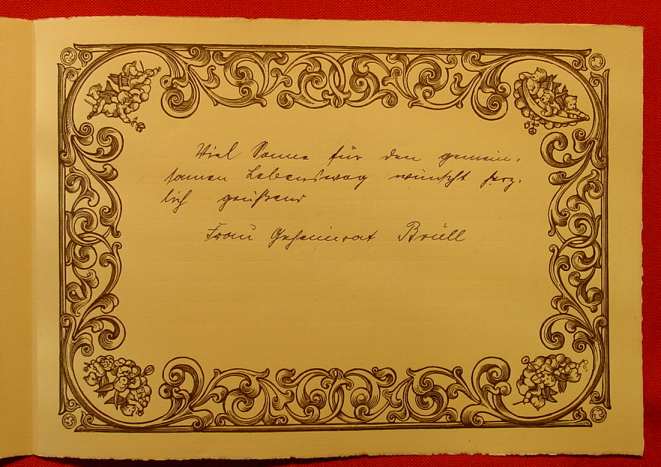 Viel Sonne für den gemein-
samen Lebensweg wünscht herz-
lich grüßend
Frau Geheimrat Brüll